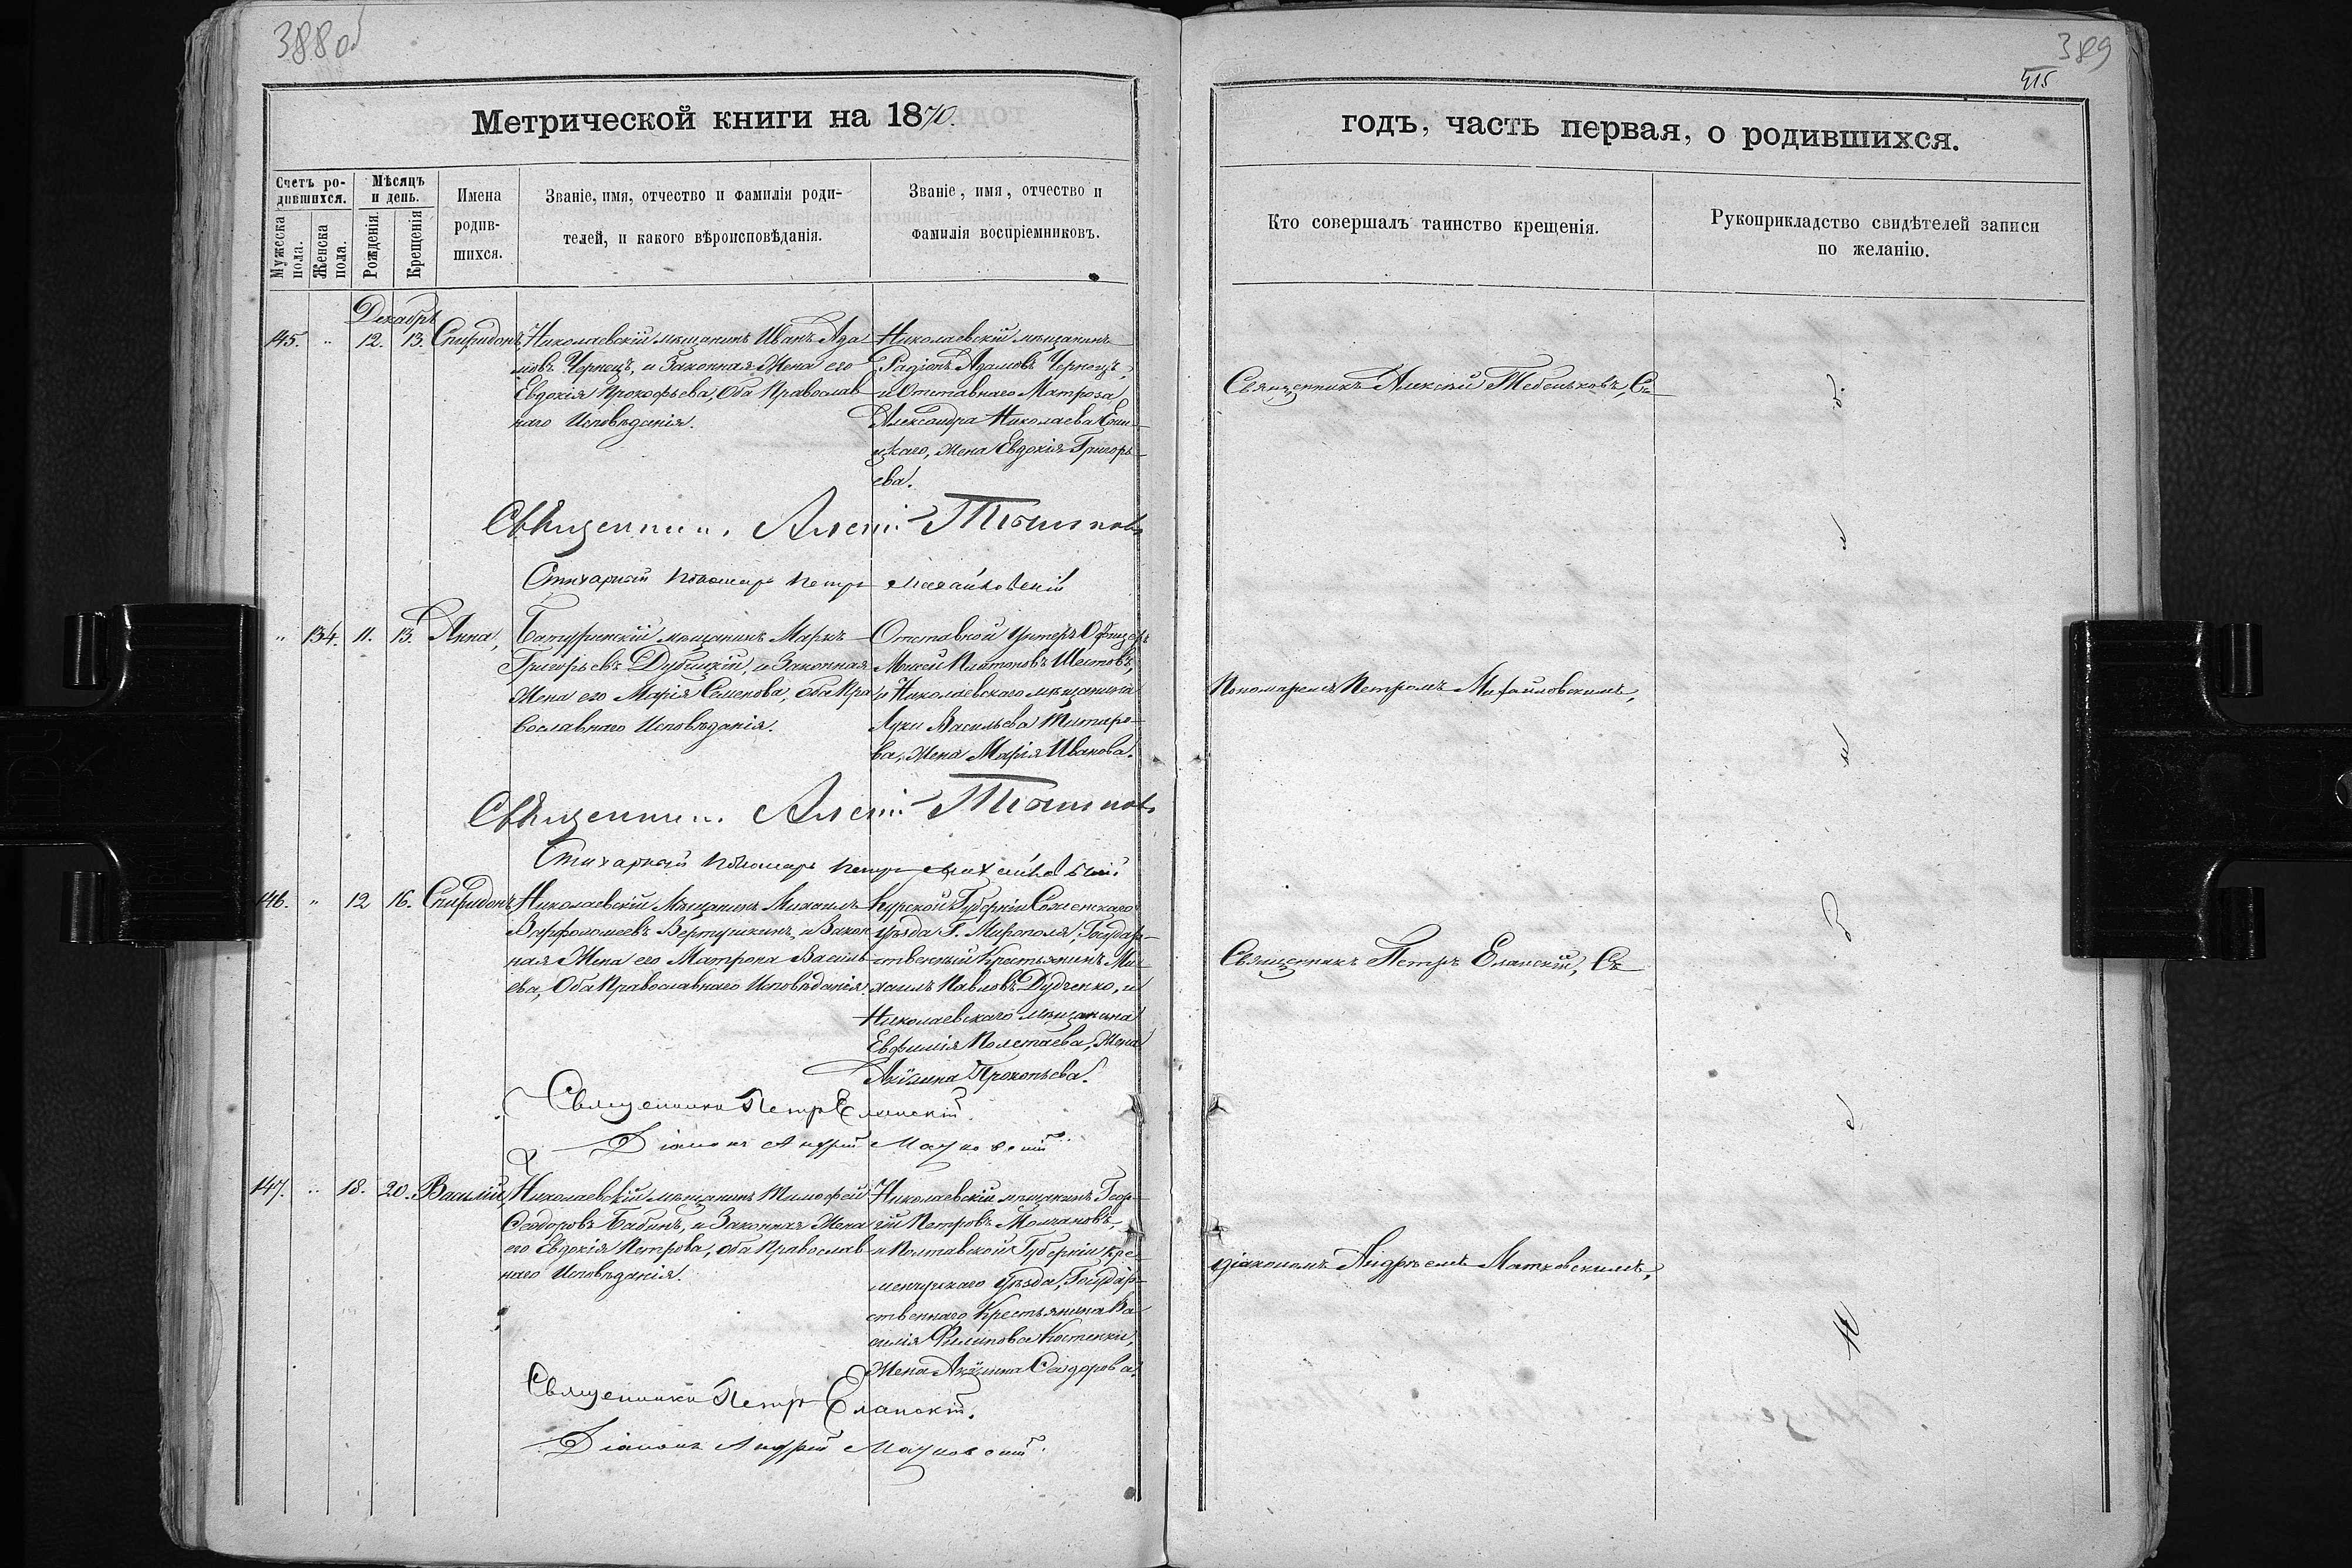 388 об
Метрической книги на 1870.
Счетъ ро-
дившихся.
Мужеска
пола.
Женска
пола.
Мѣсяцъ
и день.
Рожденія.
Крещенія
Имена
родив-
шихся.
Званіе, имя, отчество и фамилія роди-
телей, и какого вѣроисповѣданія.
Званіе, имя, отчество и
фамилія воспріемниковъ.
Декабрь
145. " 12. 13. Спиридонъ,
Николаевскій мѣщанинъ Иванъ Ада
мовъ Чернецъ, и Законная Жена его
Евдокія Прокофьева, Оба Православ
наго Исповѣданія.
Николаевскій мѣщанинъ
Радіонъ Адамовъ Чернецъ,
и Отставнаго Матроза
Александра Николаева
цкаго, жена Евдокія Григорь
ева.
Священникъ Алексій
Стихарный Пономарь Петръ Михайловскій
" 134. 11. 13. Анна,
Батуринскій мѣщанинъ Маркъ
Григорьевъ Дубицкій, и Законная
Жена его Марія Семенова, оба Пра
вославнаго Исповѣданія.
Отставной Унтеръ Офицеръ
Моисей Платоновъ Шестовъ,
и Николаевскаго мѣщанина
Луки Васильева Титаре-
ва, Жена Марія Иванова.
Священникъ Алексій
Стихарный Пономарь Петръ Михайловскій
146. " 12 16. Спиридонъ,
Николаевскій Мѣщанинъ Михаилъ
Варфоломеевъ Вертушкинъ, и Закон
ная Жена его Матрона Василь
ева, Оба Православнаго Исповѣданія.
Курской Губерніи
Уѣзда Г. Мирополя, Государ-
ственный Крестьянинъ Ми-
хаилъ Павловъ Дудченко, и
Николаевскаго мѣщанина
Евфимія Полетаева, Жена
Акилина Прокопьева.
Священникъ Петръ Еланскій.
Діаконъ Андрей Матковскій.
147. " 18. 20. Василій,
Николаевскій мѣщанинъ Тимофей
Феодоровъ Бабинъ, и Законная Жена
его Евдокія Петрова, оба Православ
наго Исповѣданія.
Николаевскій мѣщанинъ Геор-
гій Петровъ Молчановъ,
и Полтавской Губерніи, Кре
менчугскаго Уѣзда, Государ-
ственнаго Крестьянина Ва
силія Филипова Костенки,
Жена Акилина Феодорова.
Священникъ Петръ Еланскій.
Діаконъ Андрей Матковскій.
389
415
годъ, часть первая, о родившихся.
Кто совершалъ таинство крещенія.
Рукоприкладство свидѣтелей записи
по желанію.
Священникъ Алексій Тебеньковъ, Съ
Пономаремъ Петромъ Михайловскимъ,
Священникъ Петръ Еланскій, Съ
Діакономъ Андреемъ Матковскимъ,